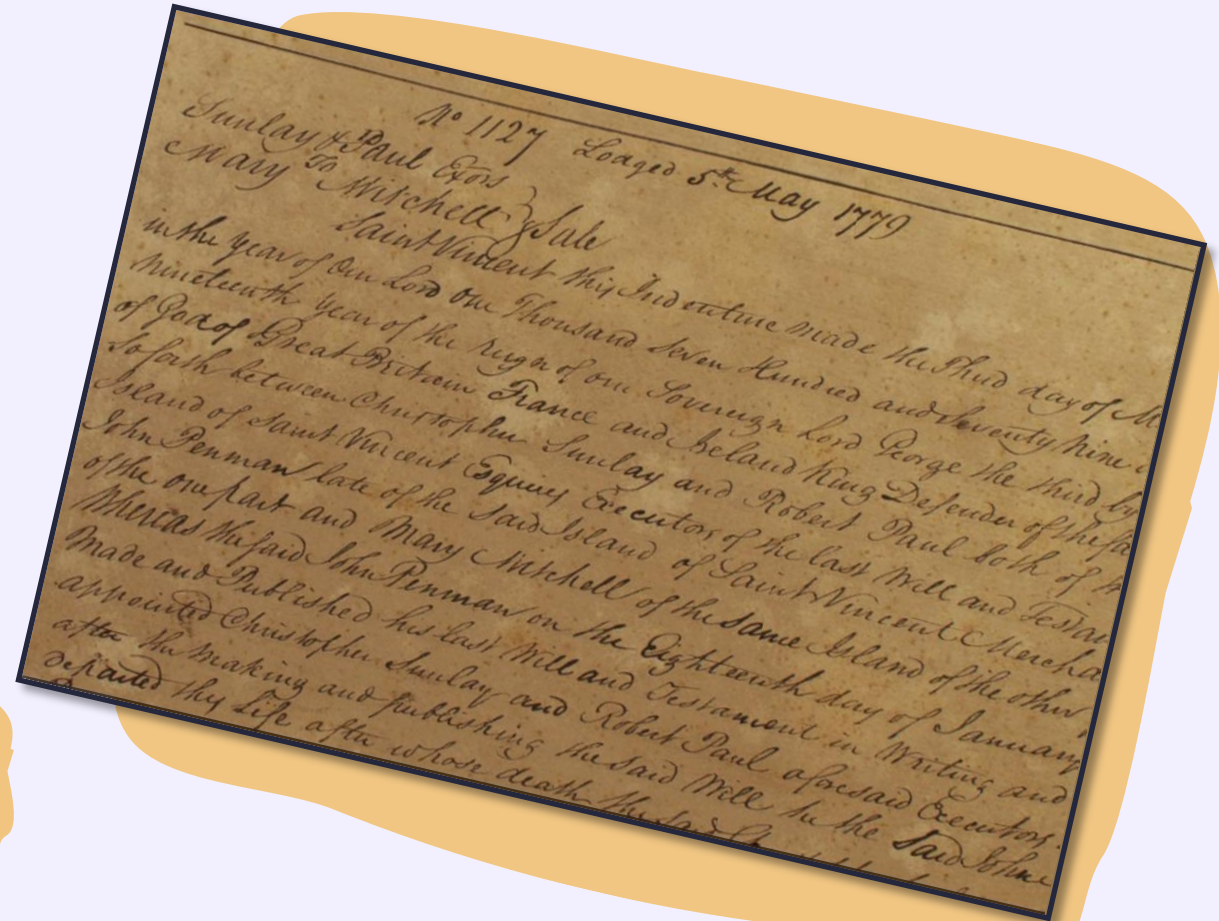 No 1127 Lodged 5th May 1779
Sunlay & Paul Exors
To
Mary Mitchell } Sale
Saint Vincent this Indenture made the Third day of M
in the year of Our Lord One Thousand Seven Hundred and Seventy Nine
nineteenth year of the reign of our Sovereign Lord George the third by
of God of Great Britain France and Ireland King Defender of the fa
So forth between Christopher Sunlay and Robert Paul both of th
Island of Saint Vincent Esquires Executors of the last Will and Testam
John Penman late of the Said Island of Saint Vincent Mercha
of the one part and Mary Mitchell of the Same Island of the other
Whereas the said John Penman on the Eighteenth day of January
Made and Published his last Will and Testament in Writing and
appointed Christopher Sunlay and Robert Paul aforesaid Executors.
after the making and publishing the said Will he the Said John
departed this Life after whose death the said